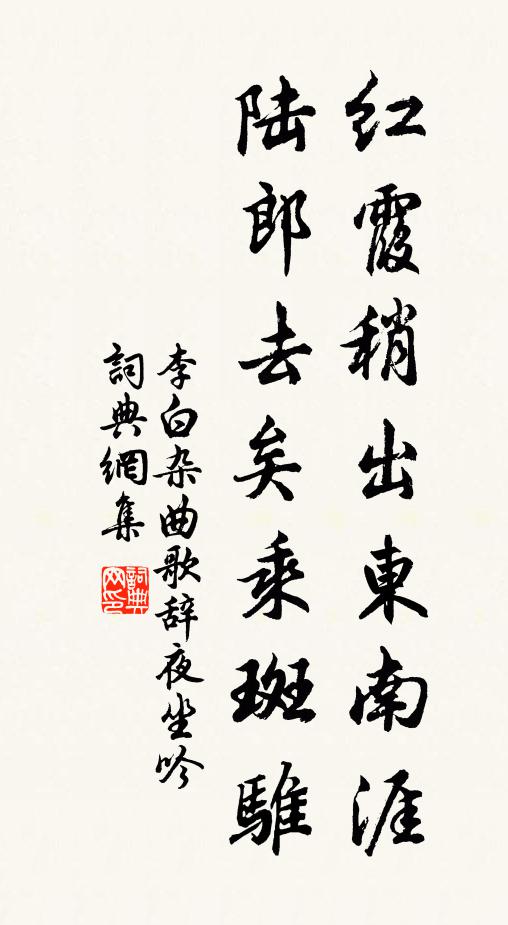 红霞稍出東南涯
陆郎去矣乘斑騅
李白杂曲歌辞夜坐吟
詞典網集
詞典网印